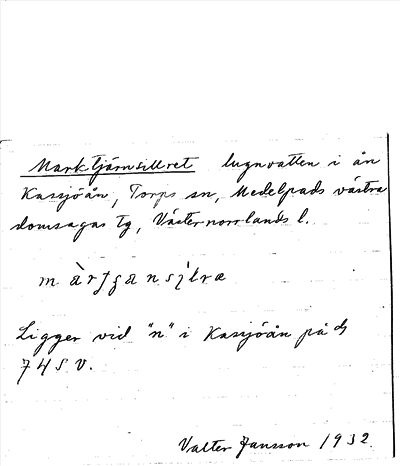 Marktjärnsillret lugnvatten i ån
Kassjöån, Torps sn, Medelpads västra
domsagas tg, Västernorrlands l.
Ligger vid "n" i Kassjöån på ds
74 S V.
Valter Jansson 1932